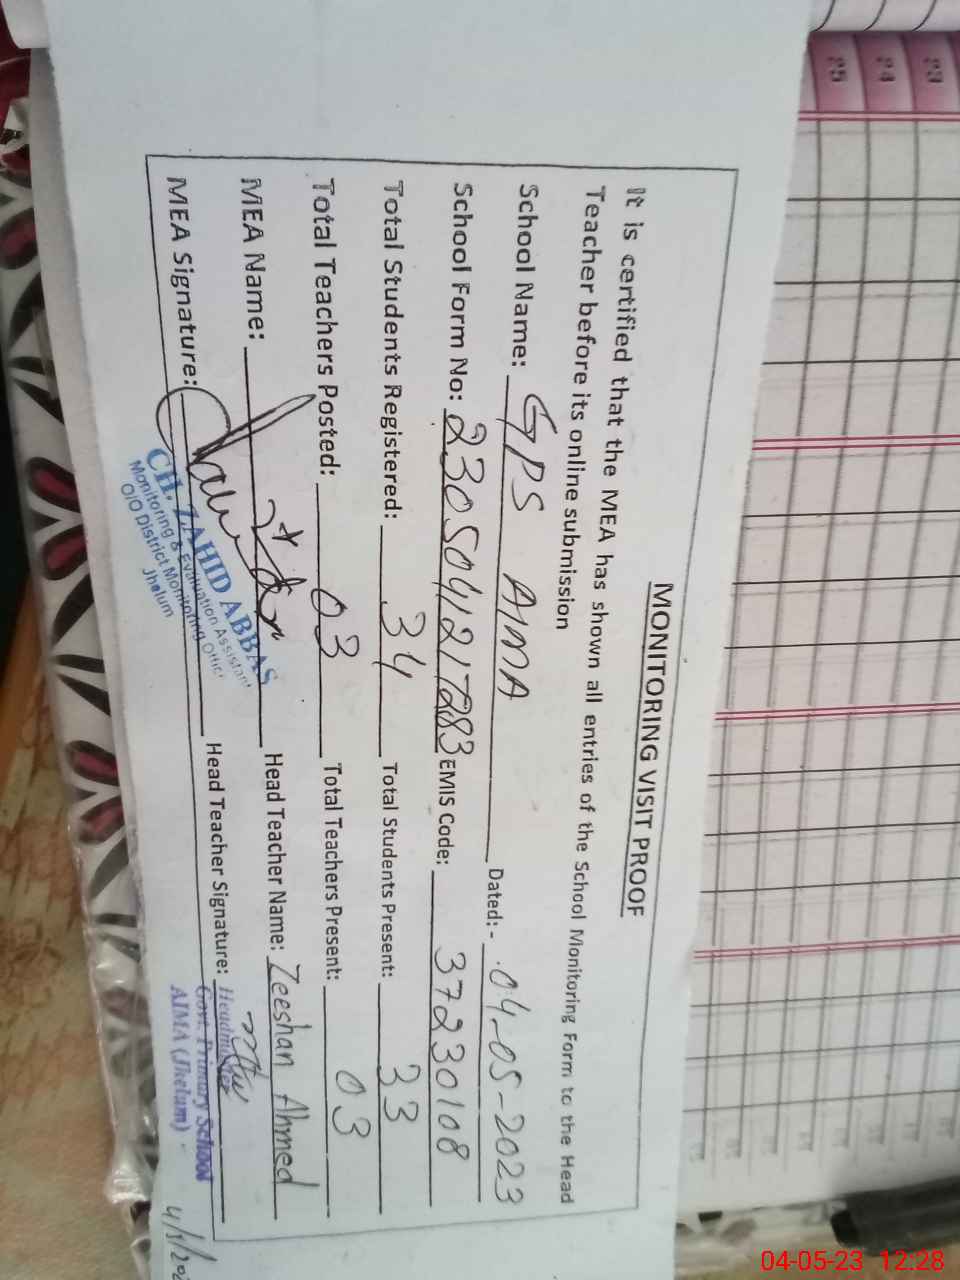 MONITORING VISIT PROOF
It is certified that the MEA has shown all entries of the School Monitoring Form to the Head
Teacher before its online submission
School Name: GPS AIMA Dated:- 04-05-2023
School Form No: 2305041217283 EMIS Code: 37230108
Total Students Registered: 34 Total Students Present: 33
Total Teachers Posted: 03 Total Teachers Present: 03
MEA Name: Head Teacher Name: Zeeshan Ahmed
MEA Signature: Head Teacher Signature:
CH. ZAHID ABBAS
Monitoring & Evaluation Assistant
O/O District Monitoring Officer
Jhelum
Headmaster
Govt. Primary School
AIMA (Jhelum)
25
24
23
04-05-23 12:28